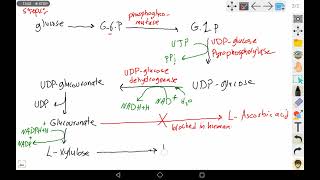 glucose → G.6.P → G.1.P
phosphoglucomutase
UTP
PPi
UDP-glucose
Pyrophosphorylase
UDP-glucuronate
UDP-glucose
dehydrogenase
UDP-glucose
NADH+H
NAD+
H2O
UDP
+ Glucuronate
L-Ascorbic acid
blocked in human
NADPH+H
NADP
L-Xylulose